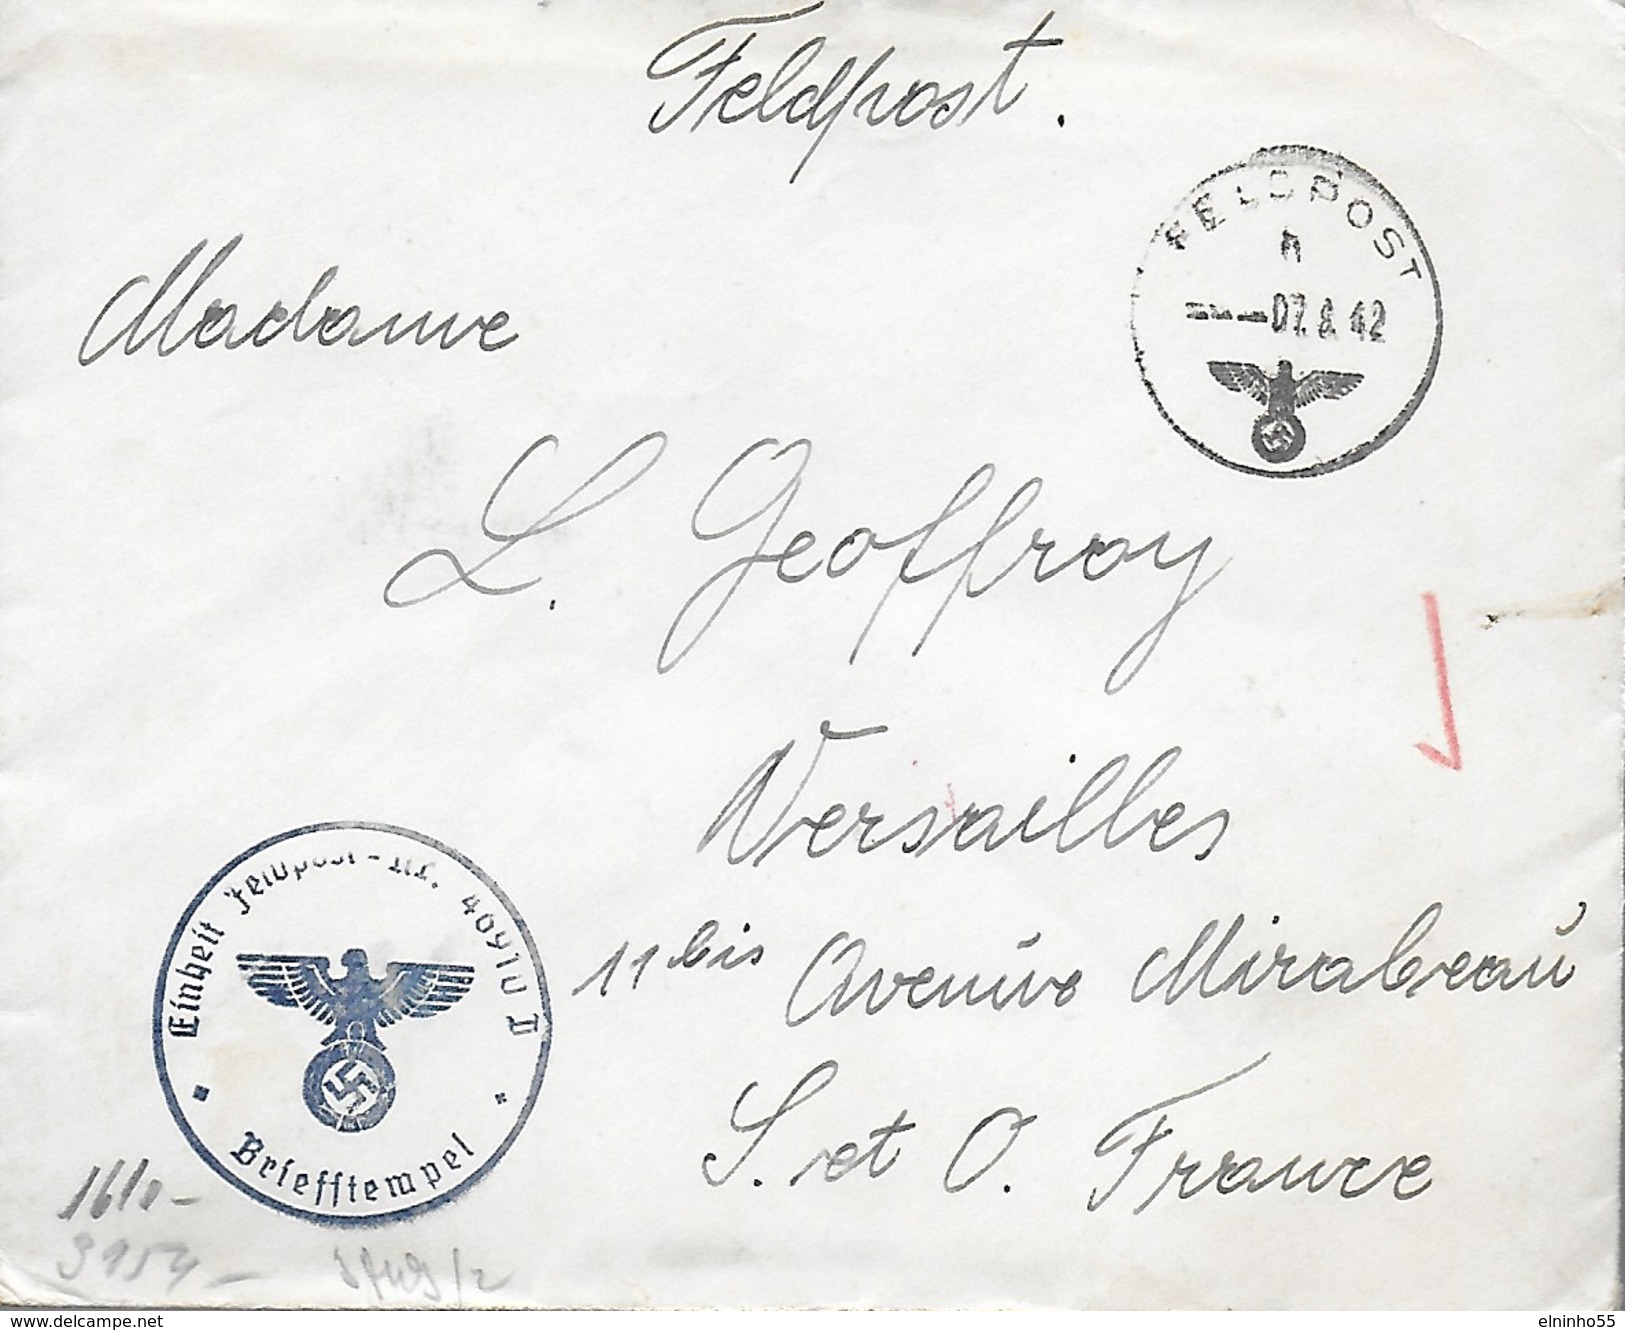 Feldpost.
FELDPOST
07.8.42
Madame
L. Geoffroy
Versailles
11 bis Avenue Mirabeau
S. et O. France
Einheit Feldpost-Nr.
Briefstempel
3154-
delcampe.net
elninho55